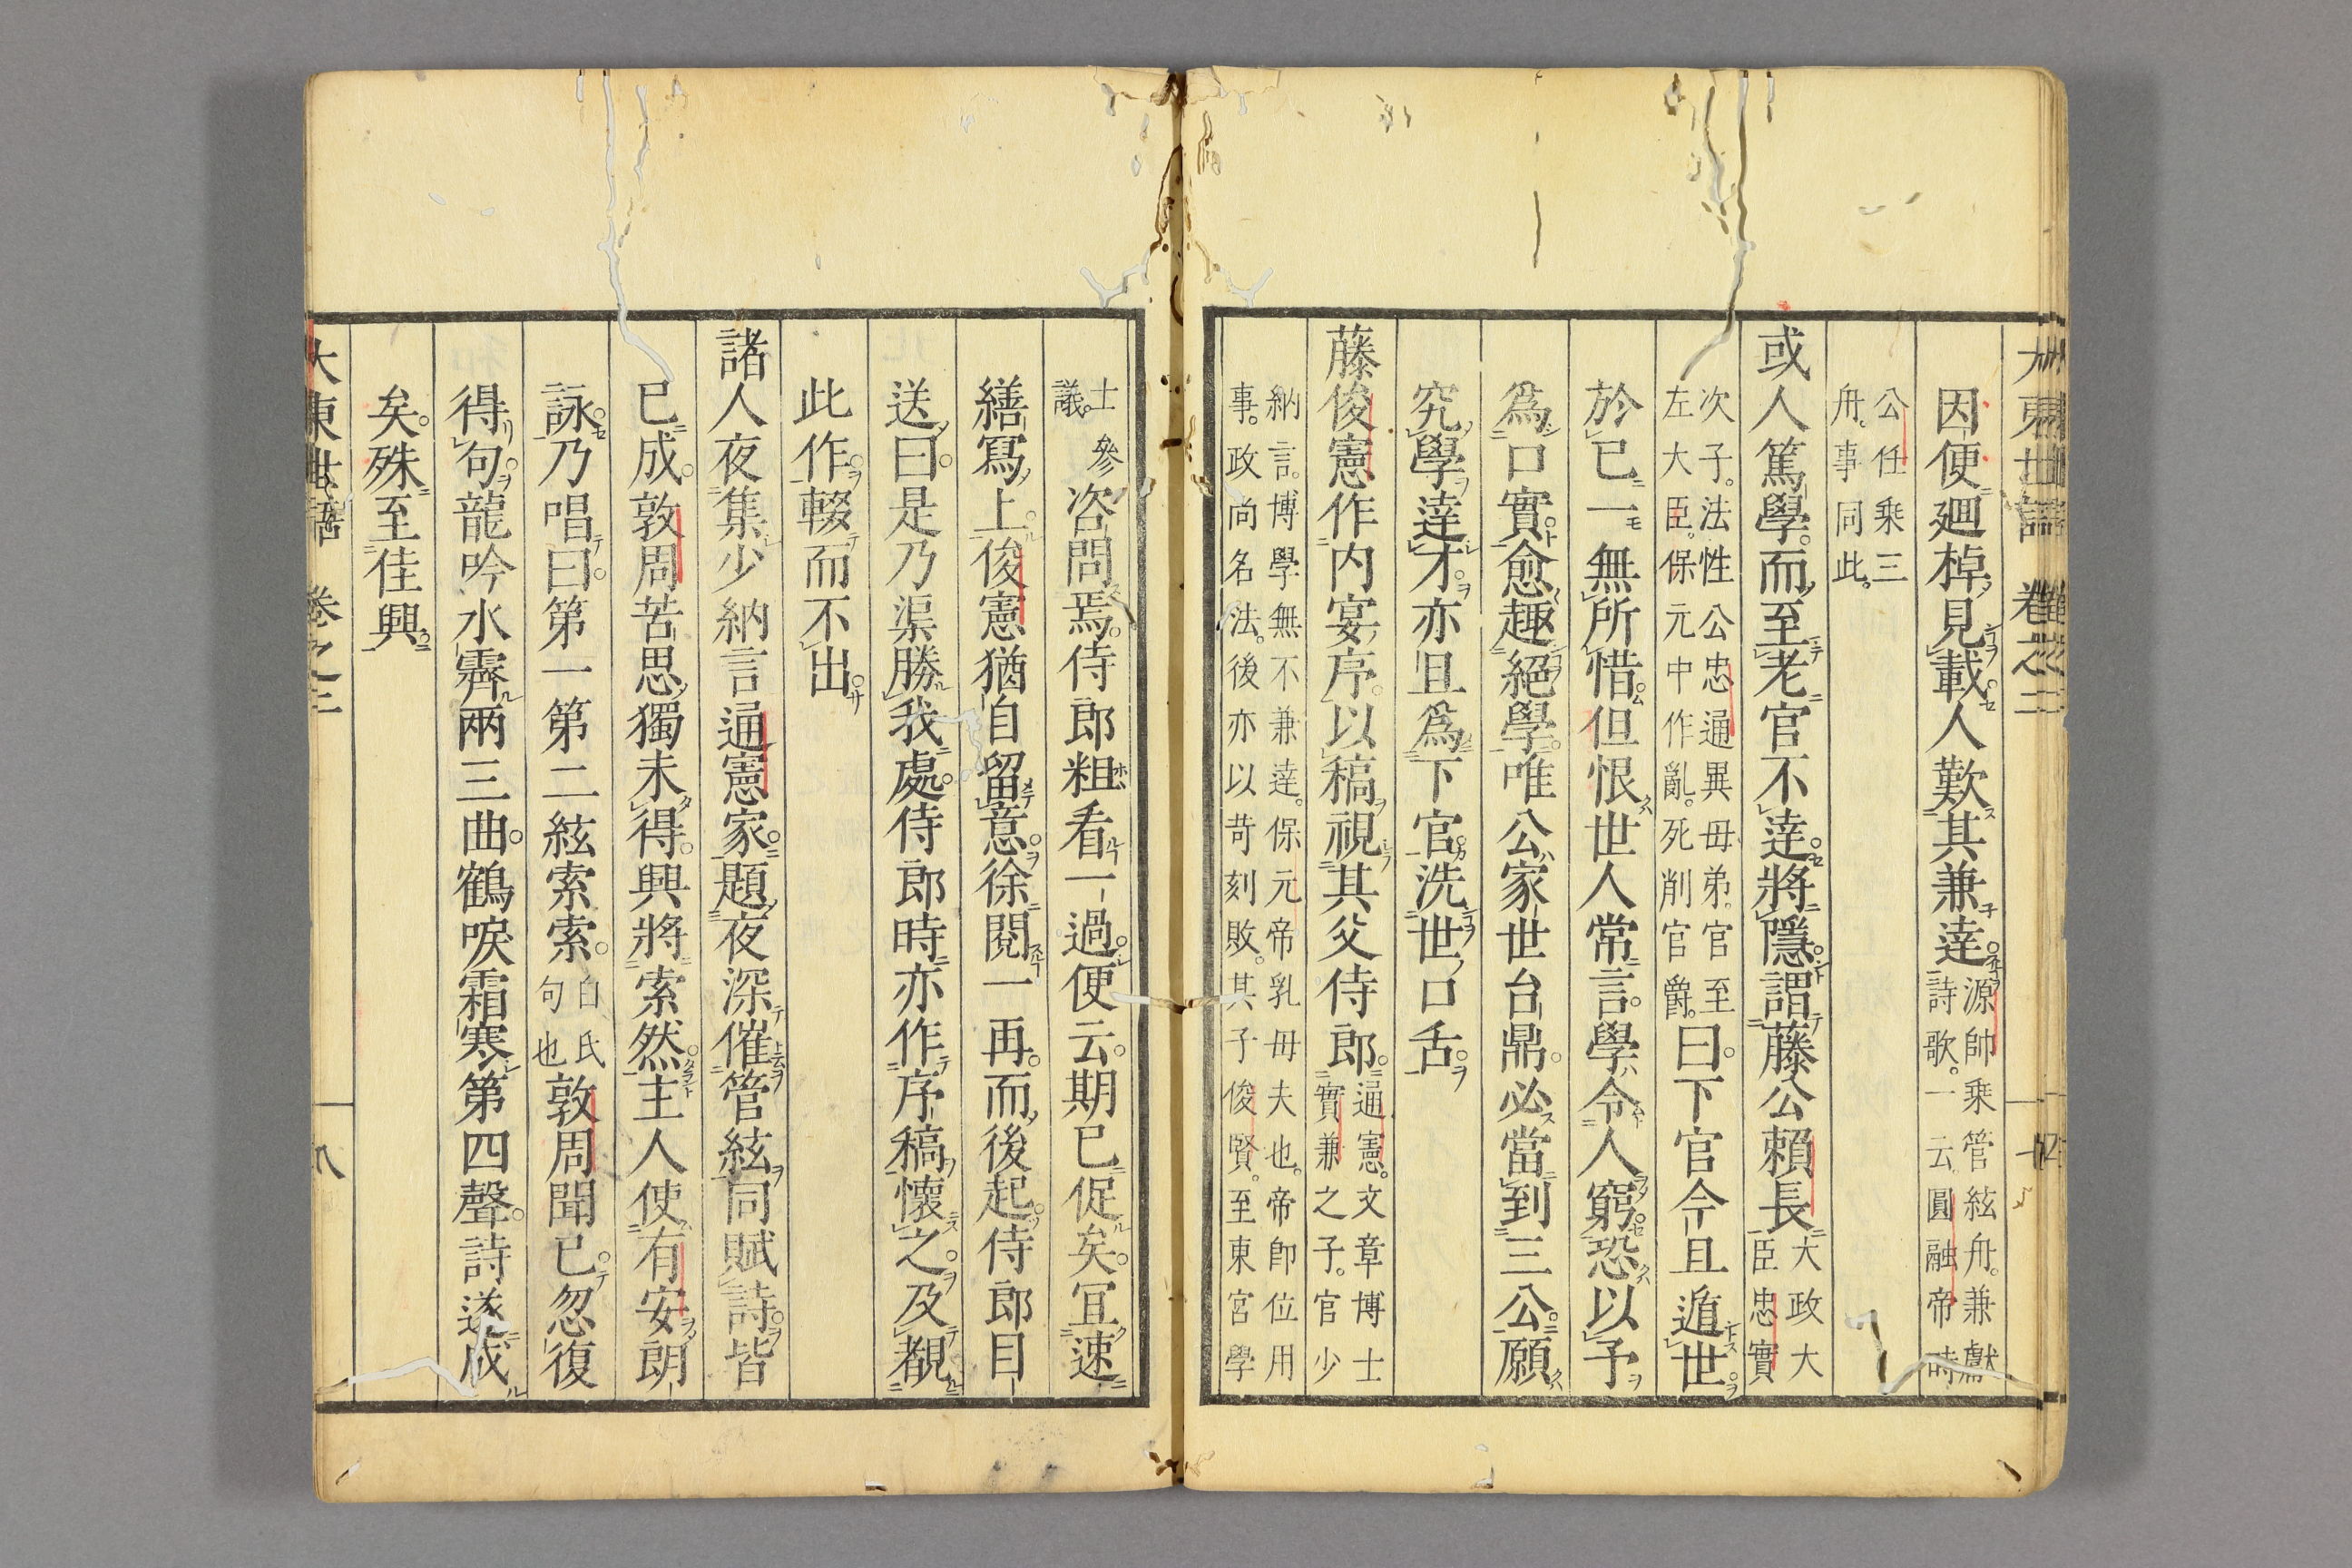 大東世語 卷之三
因便廻棹見載人歎其兼達源帥乘管絃舟兼獻詩歌一云圓融帝時
公任乘三舟事同此
或人篤學而至老官不達將隱謂藤公賴長大政大臣忠實
次子法性公忠通異母弟官至左大臣保元中作亂死削官爵曰下官今且遁世
於已一無所惜但恨世人常言學令人窮恐以予
爲口實愈趣絕學唯公家世台鼎必當到三公願
究學達才亦且爲下官洗世口舌
藤俊憲作内宴序以稿視其父侍郎通憲文章博士實兼之子官少
納言博學無不兼達保元帝乳母夫也帝卽位用事政尚名法後亦以苛刻敗其子俊賢至東宮學
士參議咨問焉侍郎粗看一過便云期已促矣冝速
繕寫上俊憲猶自留意徐閱一再而後起侍郎目
送曰是乃渠勝我處侍郎時亦作序稿懷之及覩
此作輟而不出
諸人夜集少納言通憲家題夜深催管絃同賦詩皆
已成敦周苦思獨未得興將索然主人使有安朗
詠乃唱曰第一第二絃索索白氏句也敦周聞已忽復
得句龍吟水霽兩三曲鶴唳霜寒第四聲詩遂成
矣殊至佳興
大東世語 卷之三 十八